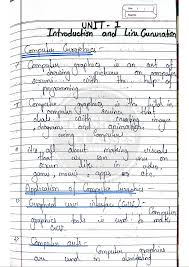 UNIT - 1
Introduction and Line Generation
Computer Graphics:-
Computer graphics is an art of
drawing pictures on computer
screen with the help of
programming.
Computer graphics is the field in
computer science that
with creating images
drawings and animation
using computer
it's all about making visuals
that we can see on
screen like in video
games, movies, apps or etc.
Application of Computer Graphics:-
Graphical user interface (GUI):-
Computer
graphics tools is used to make
GUI's.
Computer arts:-
Computer graphics
are used in designing